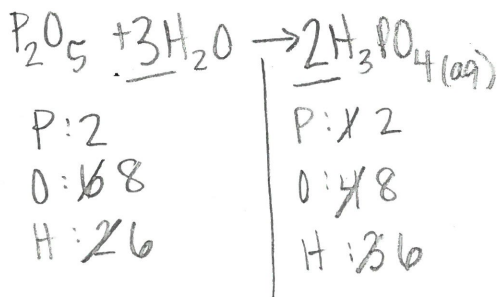 P₂O₅ + 3H₂O → 2H₃PO₄(aq)
P: 2
O: 6 8
H: 2 6
P: 1 2
O: 4 8
H: 3 6